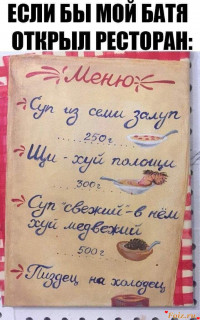 ЕСЛИ БЫ МОЙ БАТЯ
ОТКРЫЛ РЕСТОРАН:
Меню
Суп из семи залуп
....250г....
Щи - хуй полощи
....300г...
Суп "свежий" - в нём
хуй медвежий
....500г...
Пиздец, на холодец